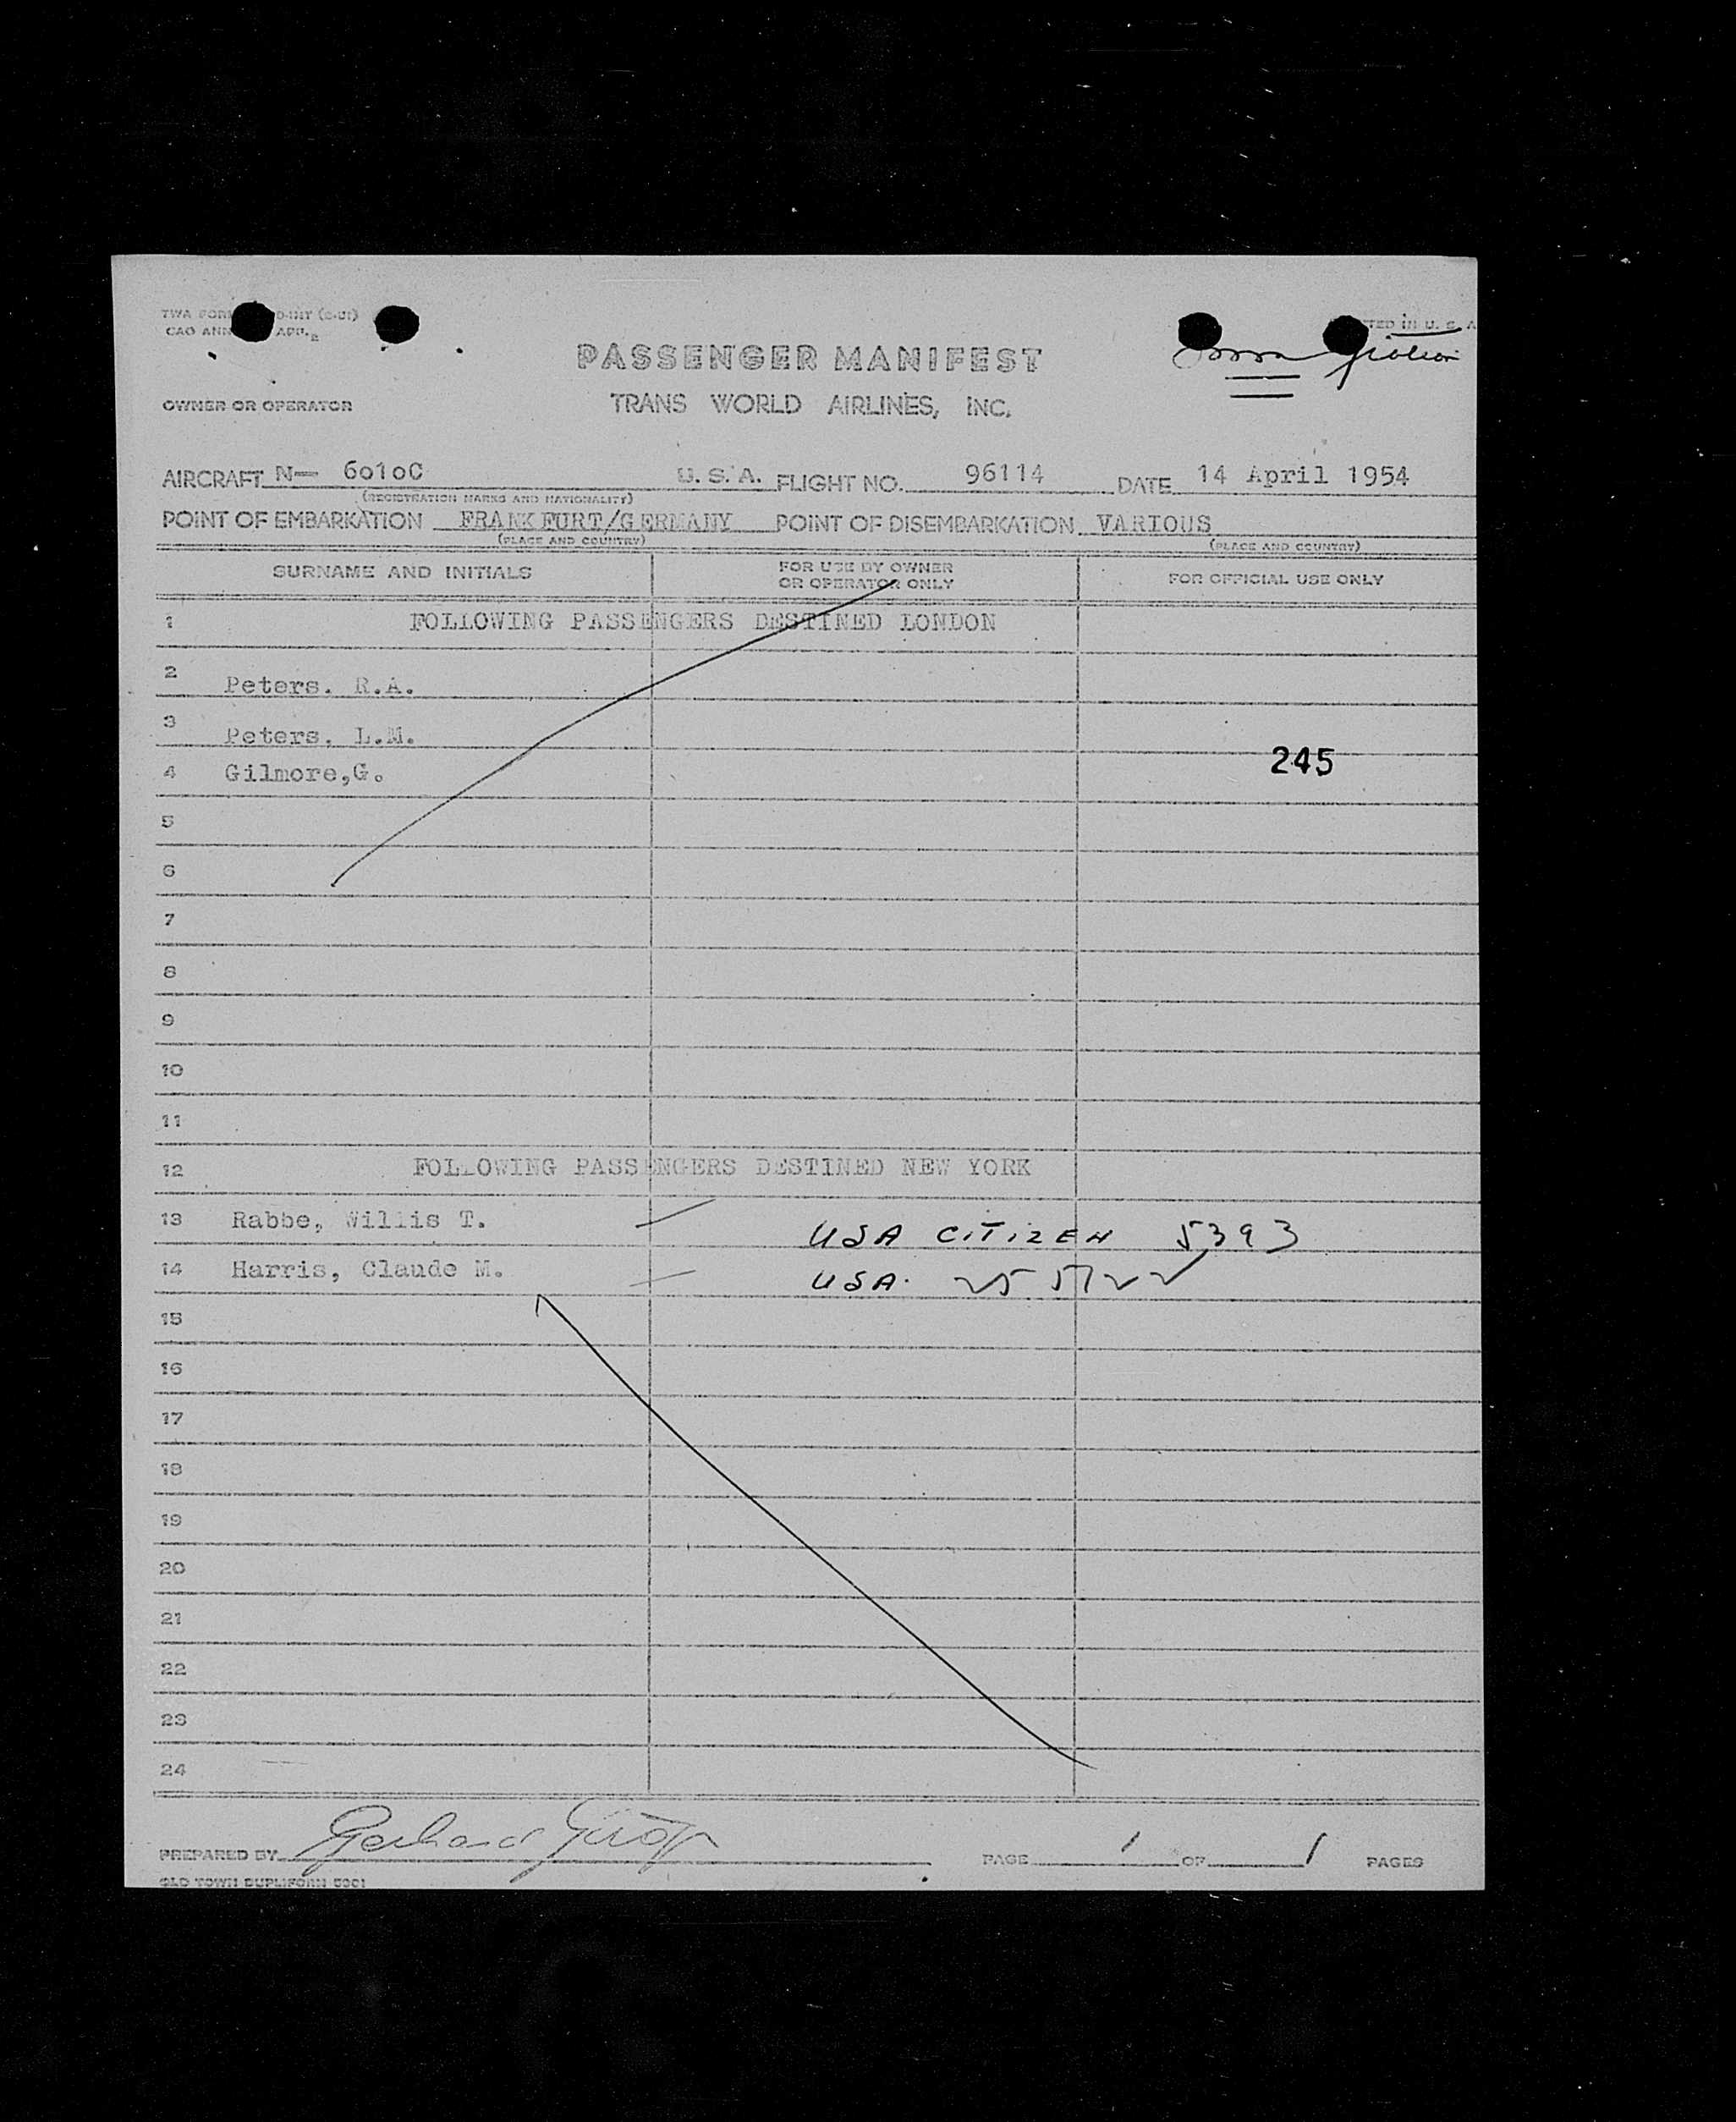 TWA FORM
CAO ANN
IN U. S. A
PASSENGER MANIFEST
OWNER OR OPERATOR TRANS WORLD AIRLINES, INC.
AIRCRAFT N— 6010C U.S.A. FLIGHT NO. 96114 DATE 14 April 1954
(REGISTRATION MARKS AND NATIONALITY)
POINT OF EMBARKATION FRANKFURT/GERMANY POINT OF DISEMBARKATION VARIOUS
(PLACE AND COUNTRY) (PLACE AND COUNTRY)
SURNAME AND INITIALS FOR USE BY OWNER OR OPERATOR ONLY FOR OFFICIAL USE ONLY
1 FOLLOWING PASSENGERS DESTINED LONDON
2 Peters. R.A.
3 Peters. L.M.
245
4 Gilmore,G.
5
6
7
8
9
10
11
12 FOLLOWING PASSENGERS DESTINED NEW YORK
13 Rabbe, Willis T. USA CITIZEN 5393
14 Harris, Claude M. USA.
15
16
17
18
19
20
21
22
23
24
PREPARED BY Gerhard PAGE 1 OF 1 PAGES
OLD TOWN DUPLIFORM